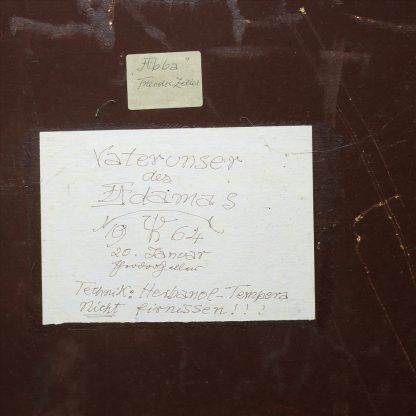 „Abba"
Theodor Zeller
Vaterunser
des
Adamas
19 64
20. Januar
Theodor Zeller
Technik: Herbanol-Tempera
Nicht firnissen!!!